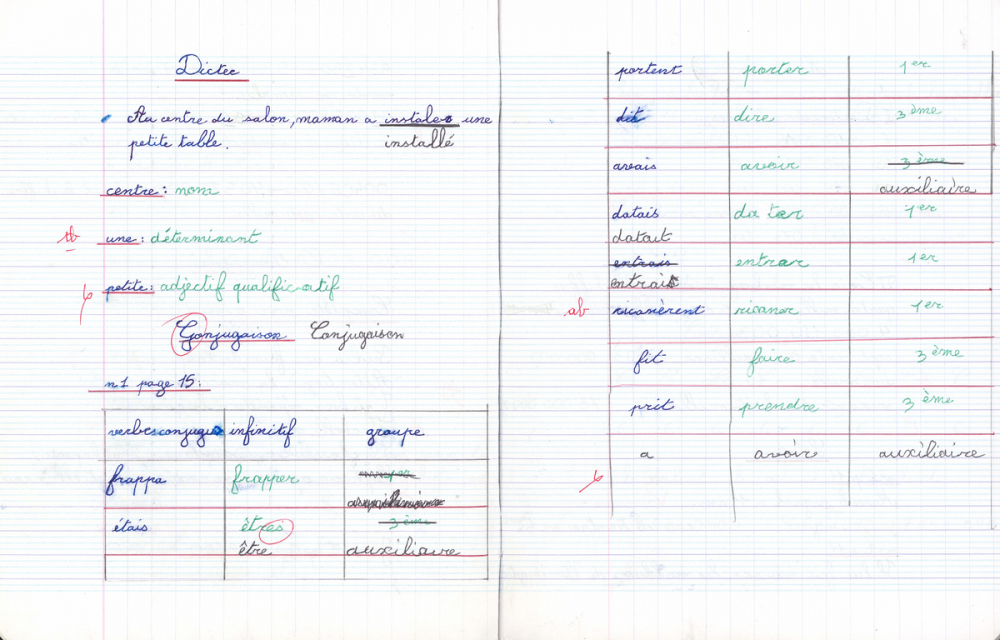 Dictee
Au centre du salon, maman a instales une
petite table. installé
centre : nom
tb une : déterminant
petite : adjectif qualificatif
Conjugaison Conjugaison
n1 page 15 :
verbes conjugués infinitif groupe
frappa frapper
étais êtres 3 ème
être auxiliaire
portent porter 1er
dit dire 3 ème
avais avoir 3 ème
auxiliaire
datais dater 1er
datait
entrais entrer 1er
entrait
ab ricanèrent ricaner 1er
fit faire 3 ème
prit prendre 3 ème
a avoir auxiliaire